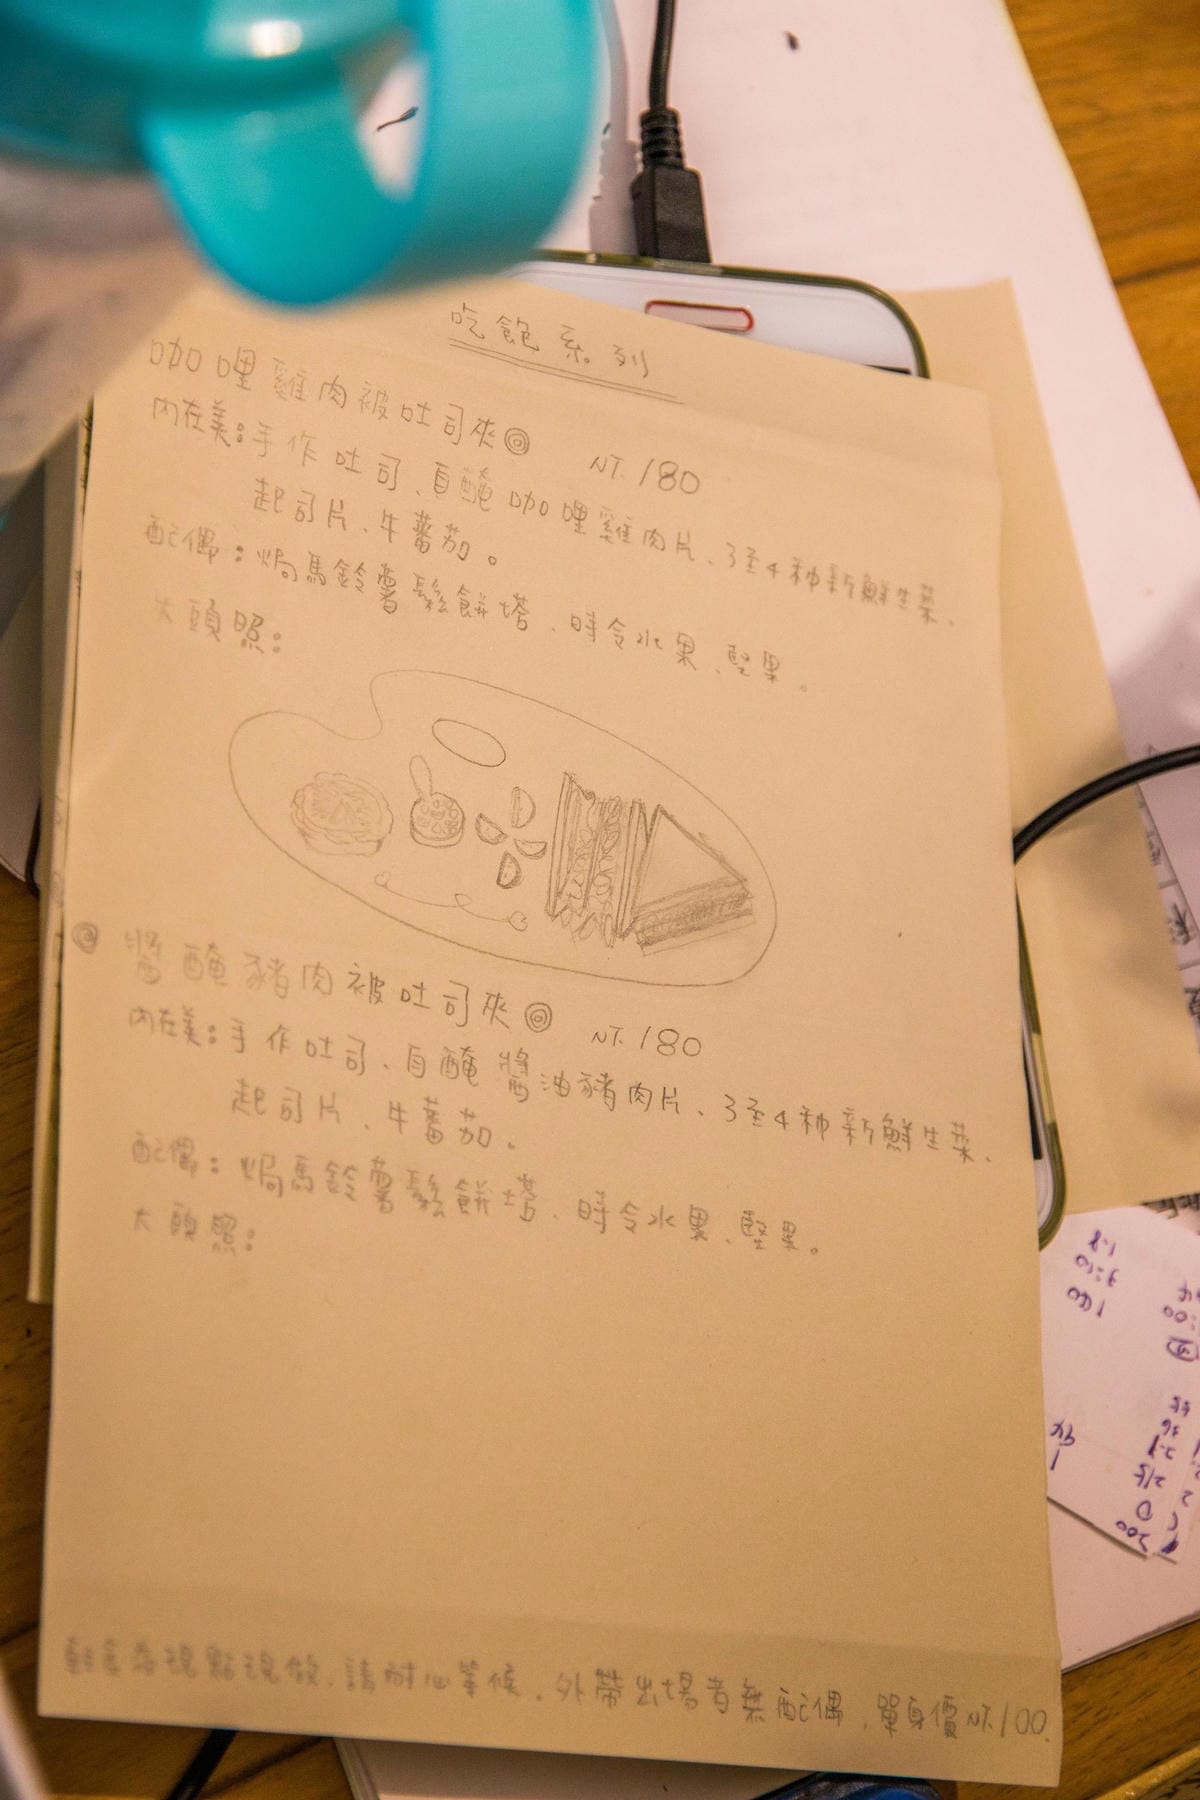 吃飽系列
咖哩雞肉被吐司夾◎ NT.180
內在美:手作吐司、自醃咖哩雞肉片、3至4種新鮮生菜、
起司片、牛蕃茄。
配偶:焗馬鈴薯鬆餅塔、時令水果、堅果。
大頭照:
◎ 醬醃豬肉被吐司夾◎ NT.180
內在美:手作吐司、自醃醬油豬肉片、3至4種新鮮生菜、
起司片、牛蕃茄。
配偶:焗馬鈴薯鬆餅塔、時令水果、堅果。
大頭照:
輕食為現點現做,請耐心等候。外帶出場者無配偶,單身價NT.100.